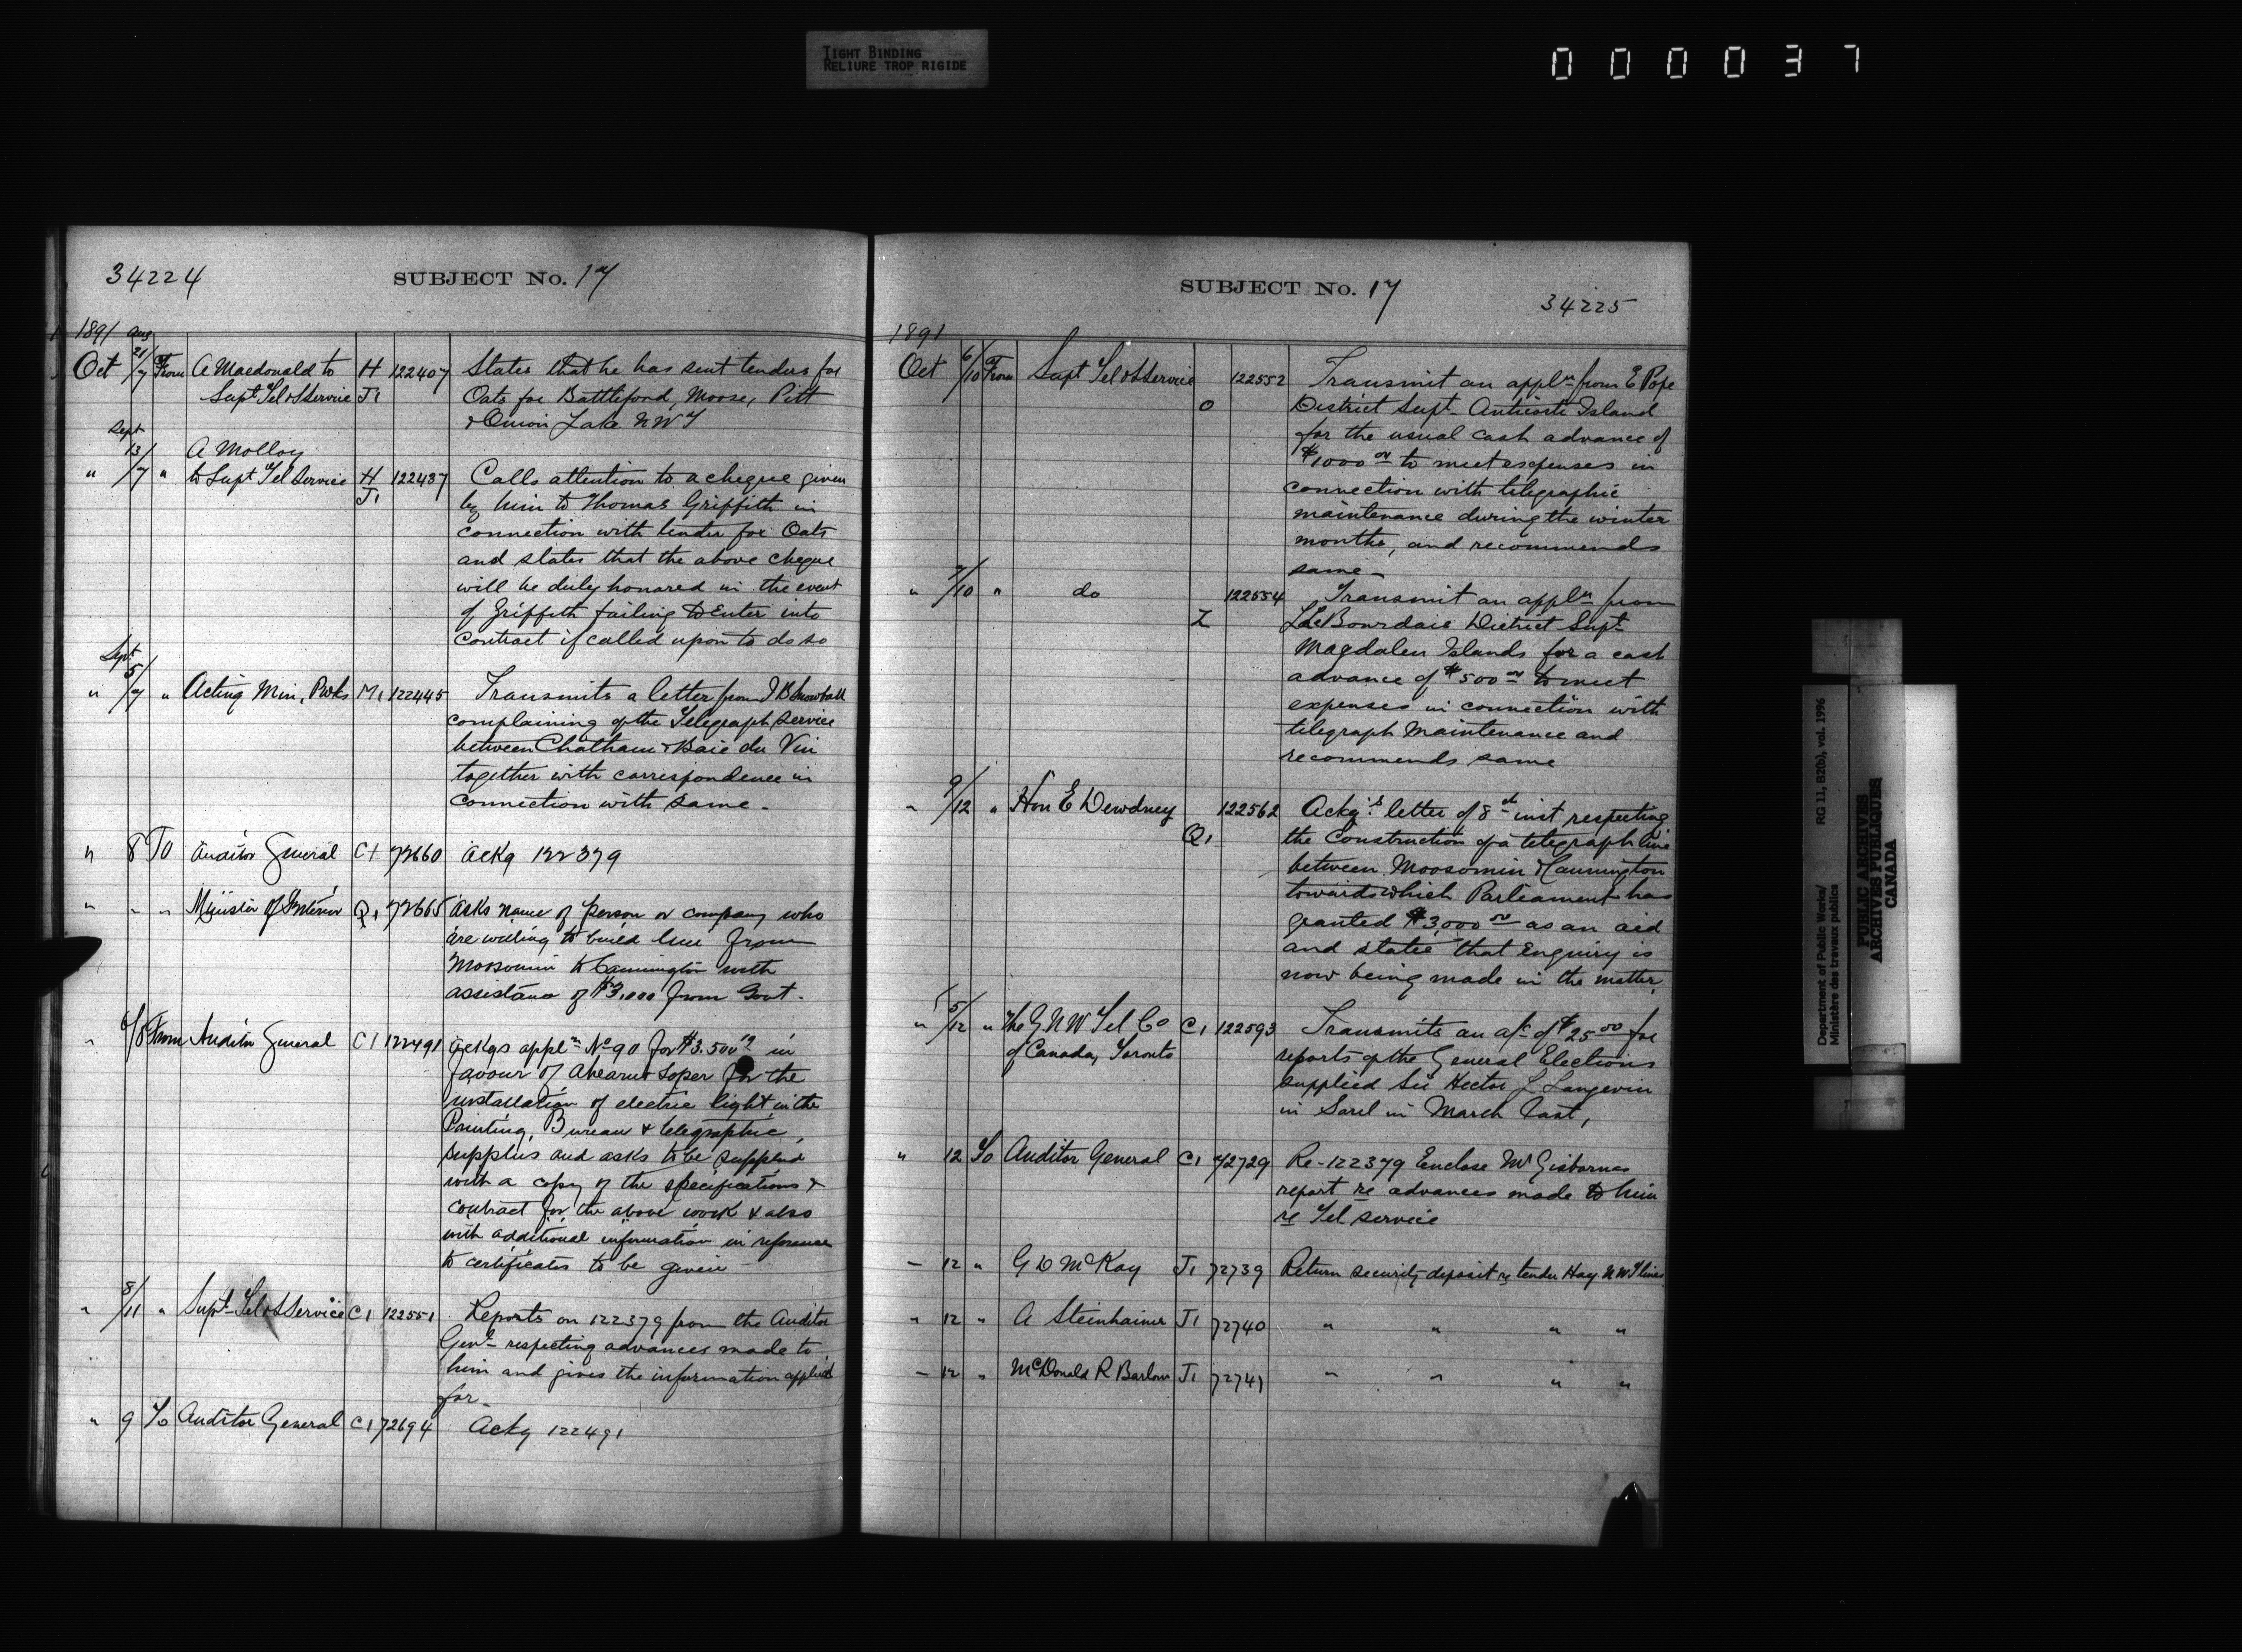 TIGHT BINDING
RELIURE TROP RIGIDE
000037
34224
SUBJECT No. 17
1891 Aug
Oct 21/7 From A Macdonald to H 122407 States that he has sent tenders for
Supt Tel & S Service J1 Oats for Battleford, Moose, Pitt
& Onion Lake NWT
Sept
13/7 A Molloy
" " to Supt Tel Service H 122437 Calls attention to a cheque given
J1 by him to Thomas Griffith in
connection with tender for Oats
and states that the above cheque
will be duly honored in the event
of Griffith failing to Enter into
Contract if called upon to do so
Sept
" 5/7 " Acting Min, P Wks M1 122445 Transmits a letter from J B Snowball
complaining of the Telegraph Service
between Chatham & Baie du Vin
together with correspondence in
connection with same -
" 8 To Auditor General C1 72660 Ackg 122379
" " " Minister of Interior Q1 72665 Asks name of person or company who
are willing to build line from
Moosomin to Cannington with
assistance of $3,000 from Govt.
" 6/8 From Auditor General C1 122491 Ackgs appln No 90 for $3.500 in
favour of Ahearn & Soper for the
installation of electric light in the
Printing Bureau & telegraphic
supplies and asks to be supplied
with a copy of the specifications &
contract for the above work & also
with additional information in reference
to certificates to be given
" 8/11 " Supt Tel & S Service C1 122551 Reports on 122379 from the Auditor
Genl - respecting advances made to
him and gives the information applied
for -
" 9 To Auditor General C1 72694 Ackg 122491
SUBJECT No. 17
34225
1891
Oct 6/10 From Supt Tel & S Service 122552 Transmit an appln from E Pope
O District Supt - Anticosti Island
for the usual cash advance of
$1000 00 to meet expenses in
connection with telegraphic
maintenance during the winter
months, and recommends
same -
" 7/10 " do 122554 Transmit an appln from
Z L LeBourdais District Supt
Magdalen Islands for a cash
advance of $500 00 to meet
expenses in connection with
telegraph Maintenance and
recommends same
" 9/12 " Hon E Dewdney 122562 Ackgs letter of 8th inst respecting
Q1 the Construction of a telegraph line
between Moosomin & Cannington
towards which Parliament has
granted $3,000 00 as an aid
and states that Enquiry is
now being made in the matter.
" 5/12 " The G. N W Tel Co C1 122593 Transmits an a/c of $25 00 for
of Canada, Toronto reports of the General Elections
supplied Sir Hector L Langevin
in Sorel in March last,
" 12 To Auditor General C1 72729 Re - 122379 Enclose Mr Gisbornes
report re advances made to him
re Tel service
- 12 " G D McKay J1 72739 Return security deposit re tender Hay NWT lines
" 12 " A Steinhainer J1 72740 " " " "
- 12 " McDonald R Barlow J1 72741 " " " "
Department of Public Works/ RG 11, B2(b), vol. 1996
Ministère des travaux publics
PUBLIC ARCHIVES
ARCHIVES PUBLIQUES
CANADA